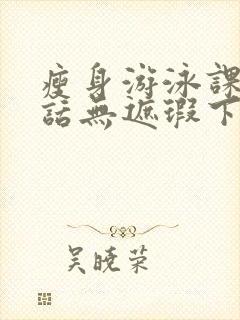 瘦身游泳課
話無遮瑕下
吴晓荣